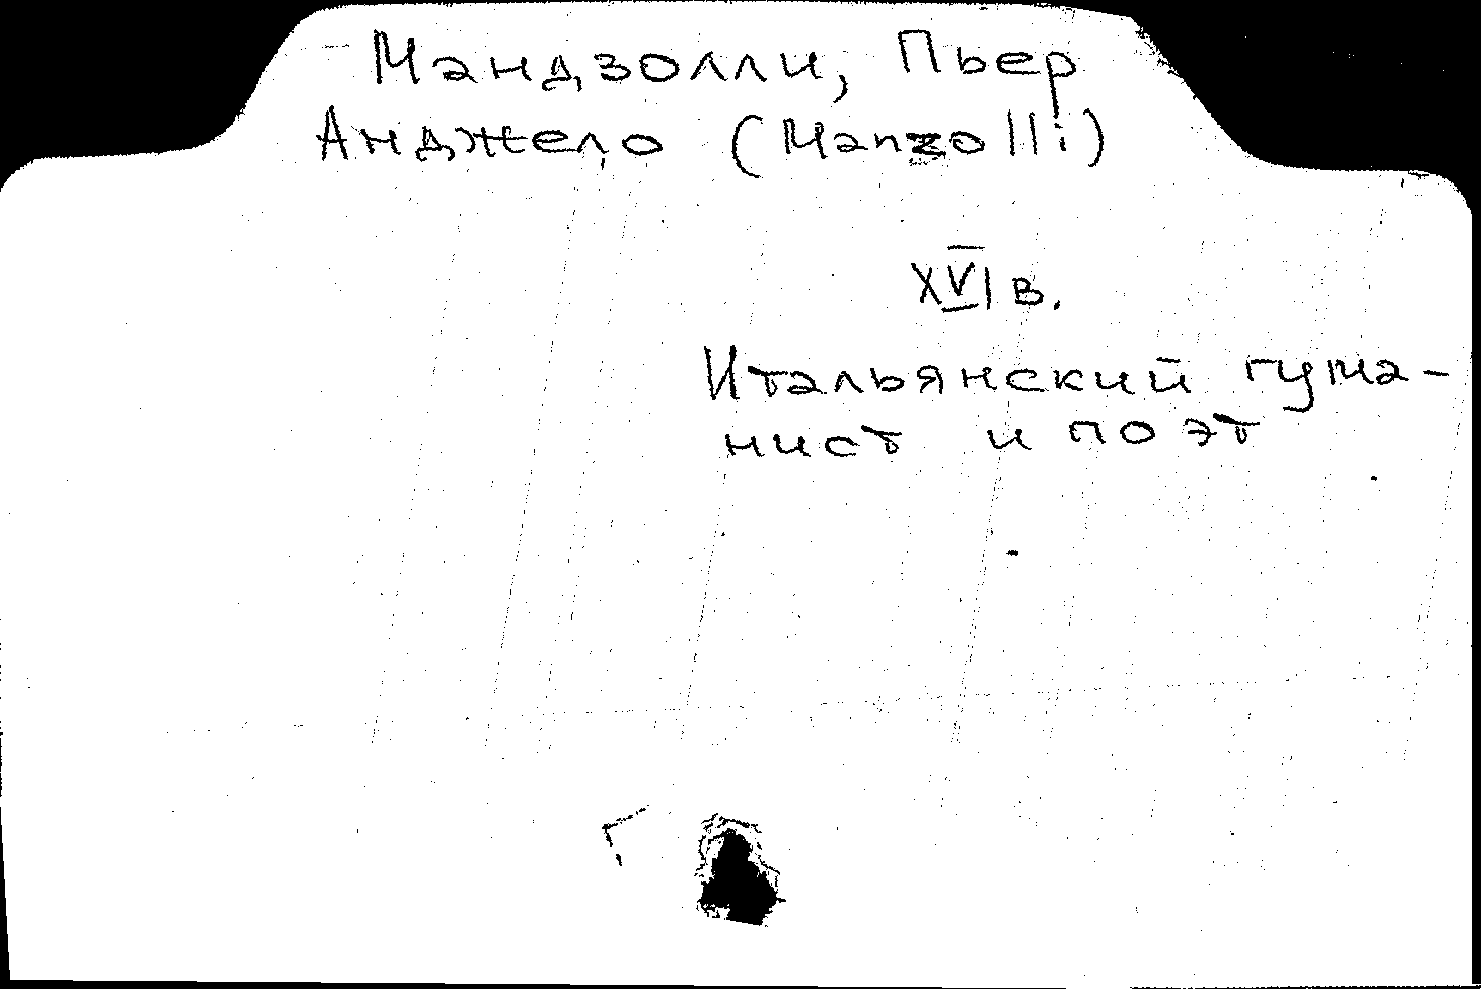 Мандзолли, Пьер
Анджело (Manzolli)
XVI в.
Итальянский гума-
нист и поэт